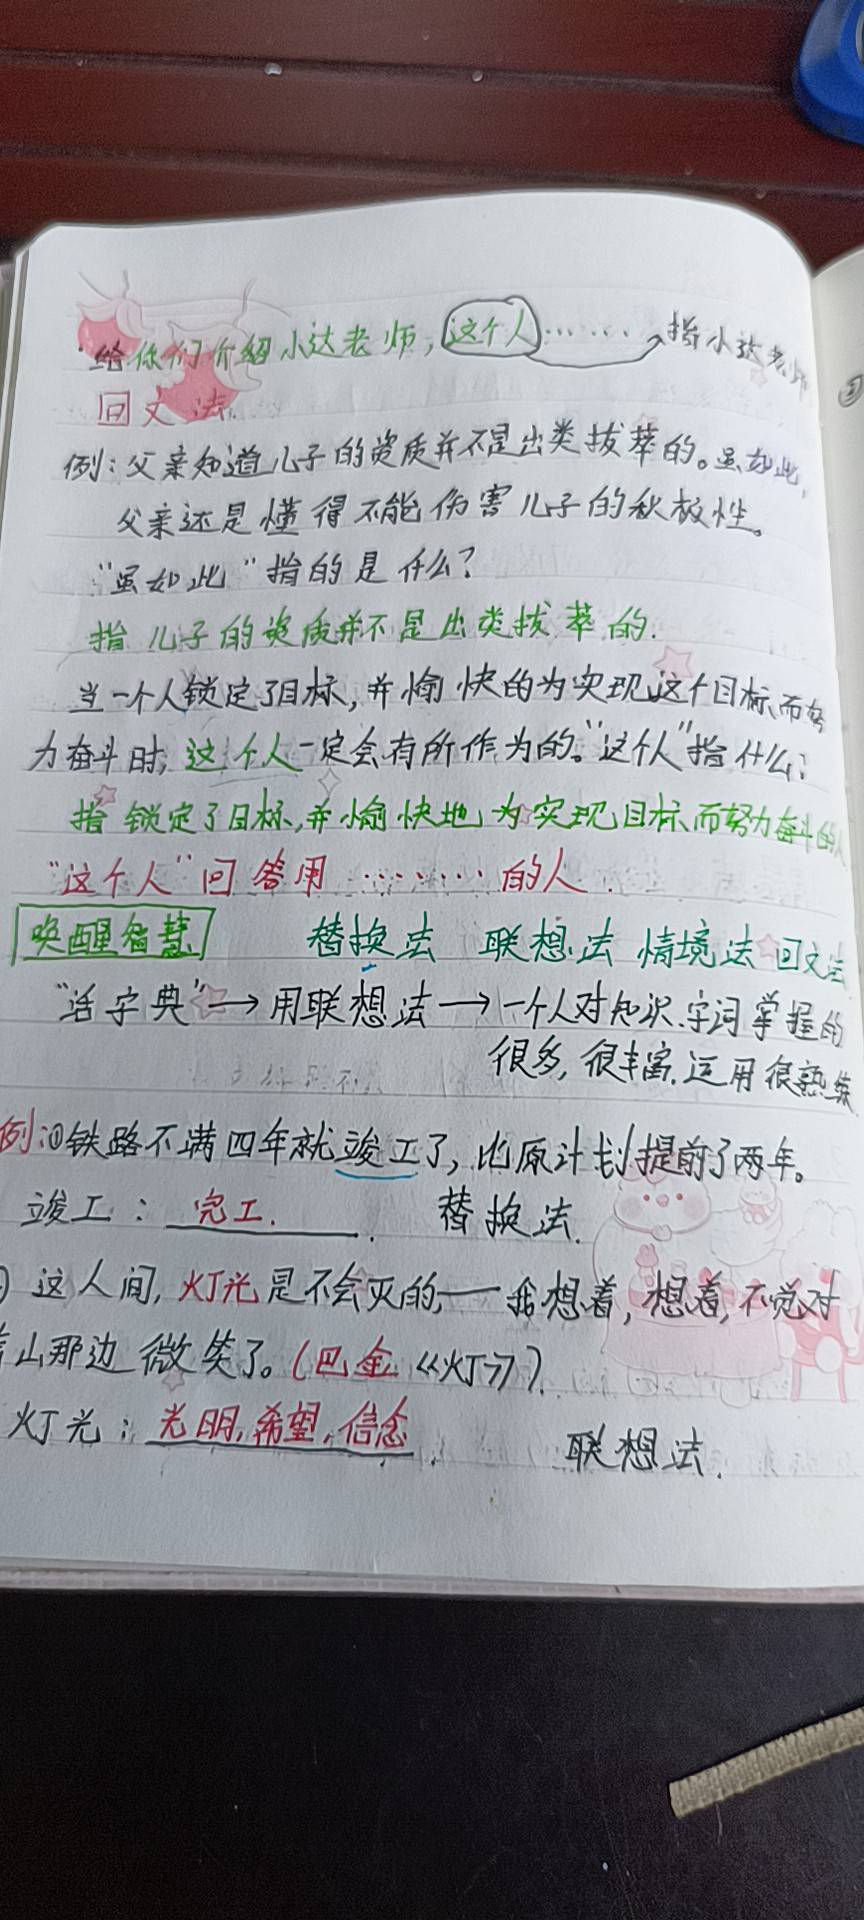 给你们介绍小达老师，这个人……指小达老师
回文法
例：父亲知道儿子的资质并不是出类拔萃的。虽如此，
父亲还是懂得不能伤害儿子的积极性。
“虽如此”指的是什么？
指儿子的资质并不是出类拔萃的.
当一个人锁定了目标，并愉快的为实现这个目标而努
力奋斗时，这个人一定会有所作为的。“这个人”指什么？
指锁定了目标，并愉快地为实现目标而努力奋斗的人
“这个人”回答用………的人.
唤醒智慧 替换法 联想法 情境法 回文法
“活字典”→用联想法→一个人对知识、字词掌握的
很多，很丰富.运用很熟练
例：①铁路不满四年就竣工了，比原计划提前了两年。
竣工：完工. 替换法.
这人间，灯光是不会灭的——我想着，想着，不觉对
着山那边微笑了。（巴金《灯》）
灯光：光明，希望，信念. 联想法.